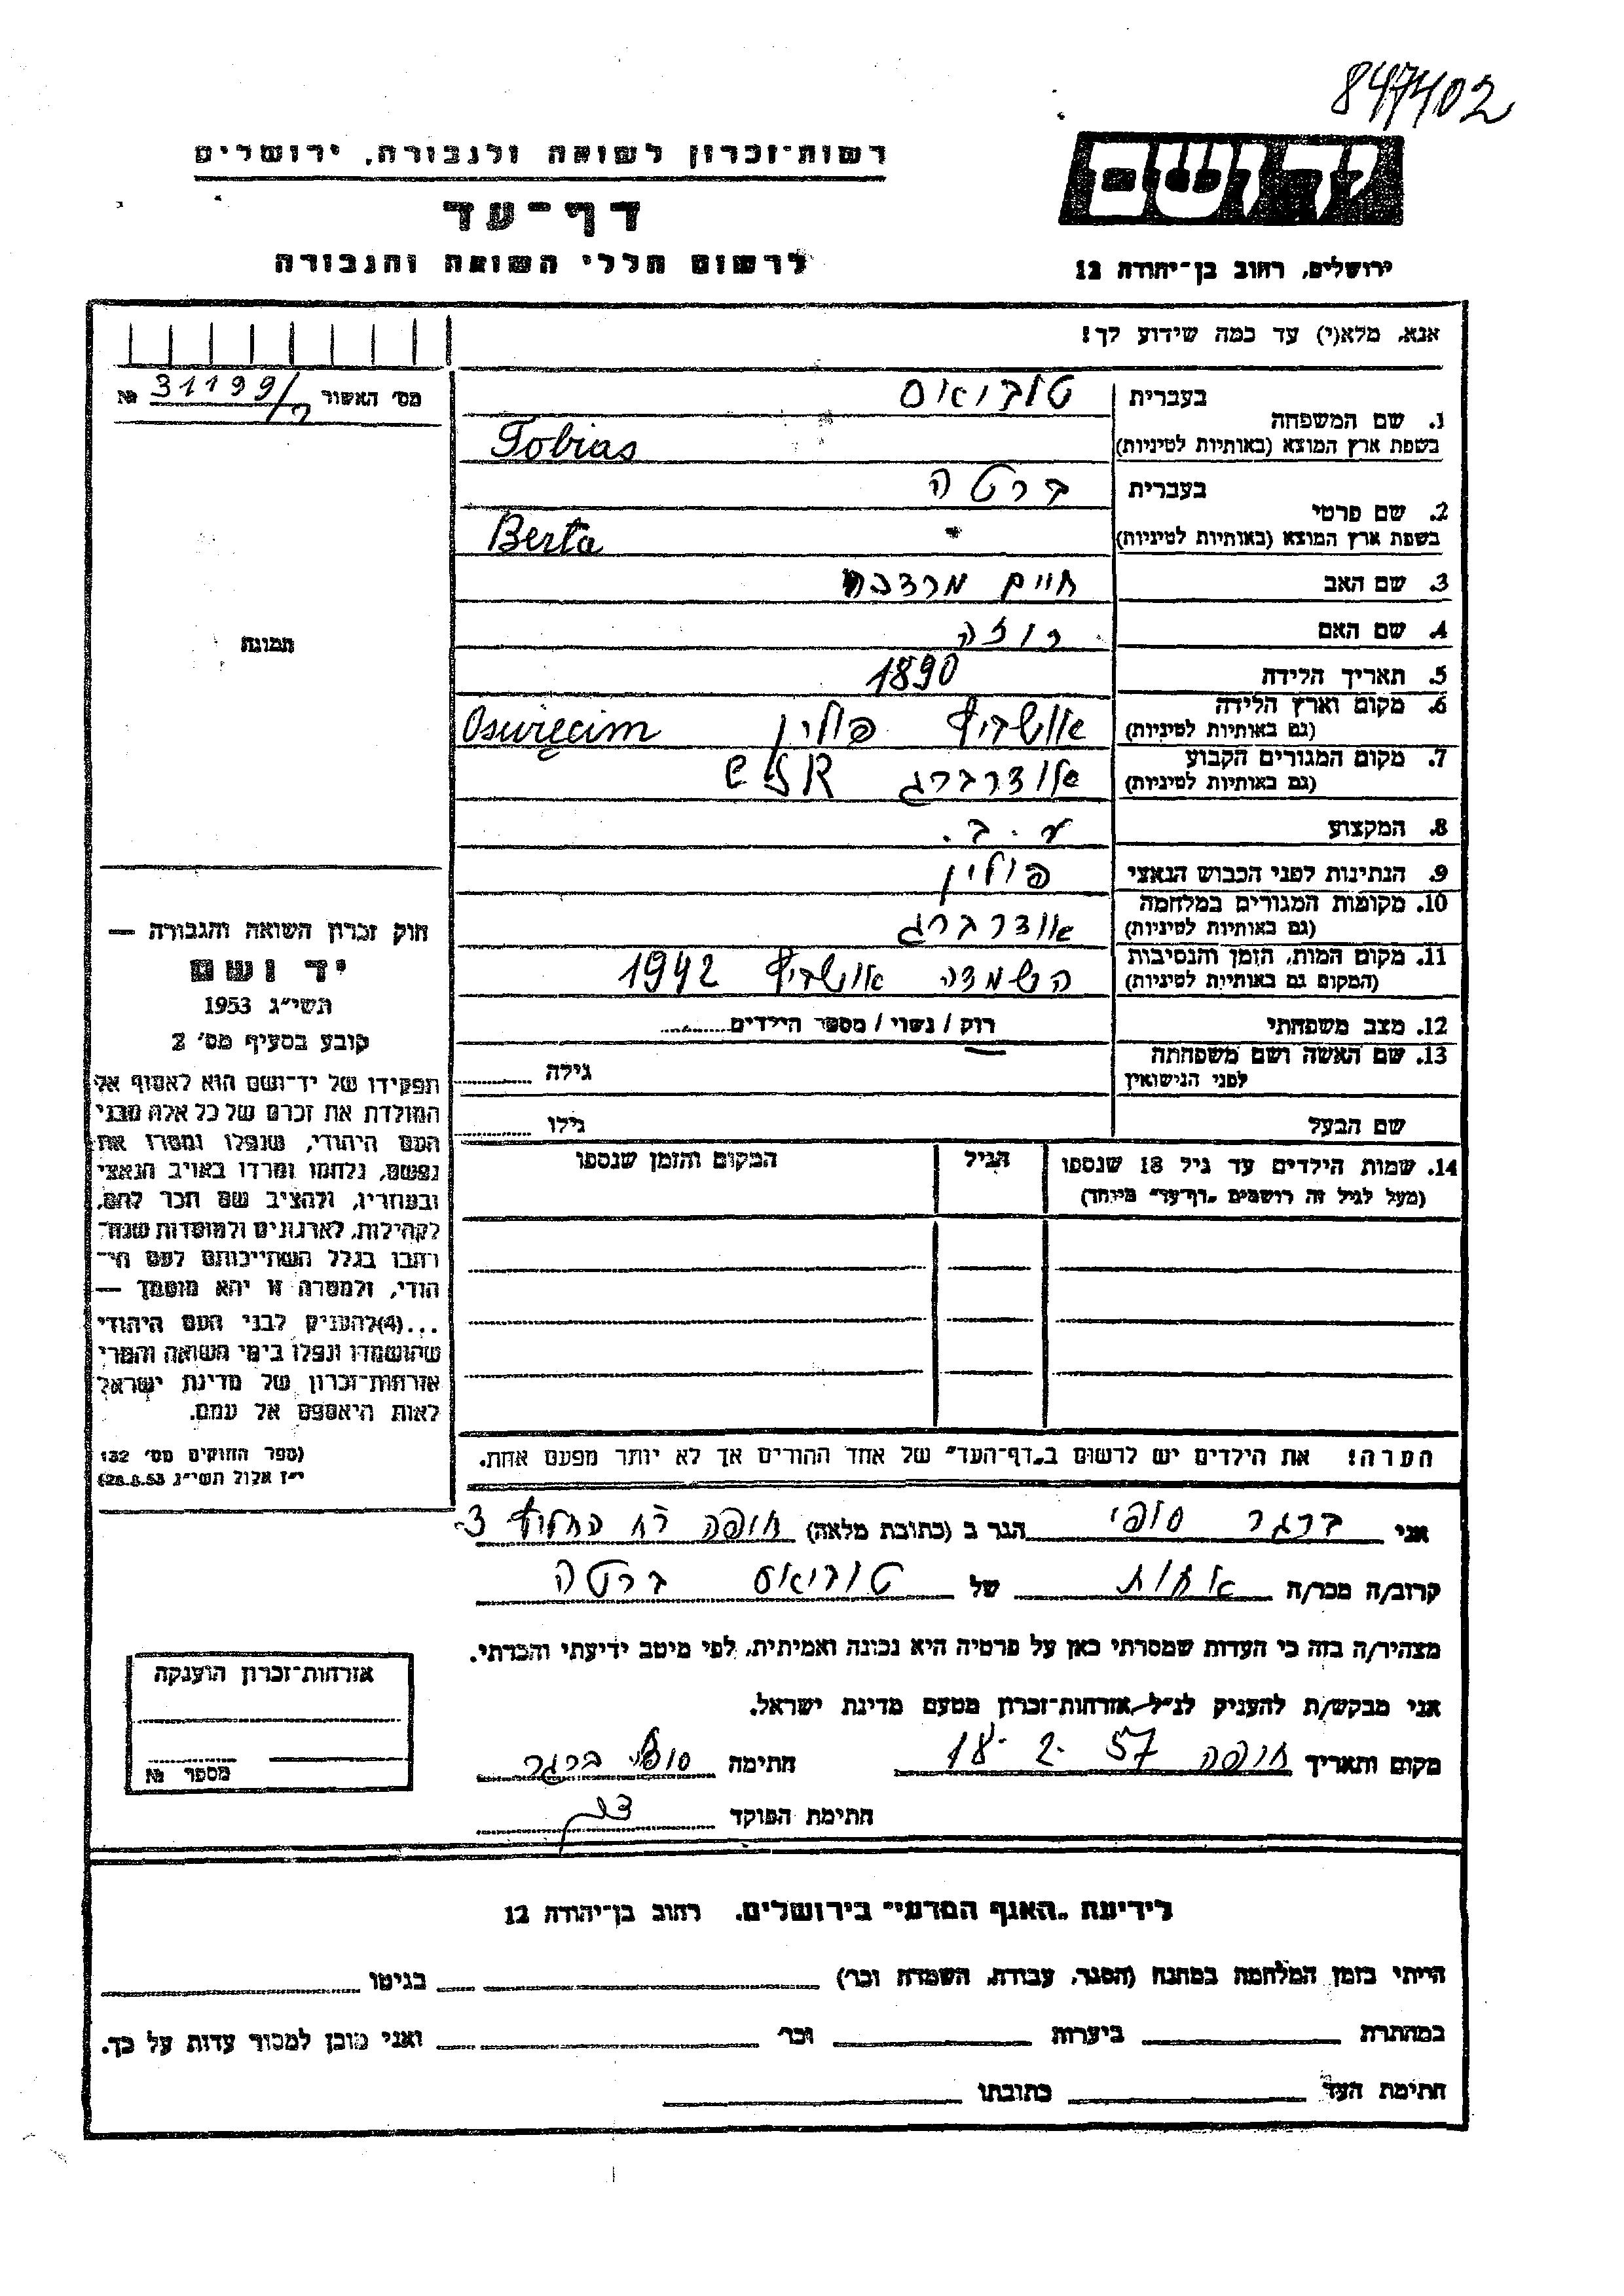 847402
רשות-זכרון לשואה ולגבורה, ירושלים
יד ושם
דף-עד
לרשום חללי השואה והגבורה
ירושלים, רחוב בן-יהודה 12
אנא, מלא(י) עד כמה שידוע לך!
מס' האשור 31199/ק №
1. שם המשפחה
בעברית טוביאס
בשפת ארץ המוצא (באותיות לטיניות) Tobias
2. שם פרטי
בעברית ברטה
בשפת ארץ המוצא (באותיות לטיניות) Berta
3. שם האב חיים מרדכי
4. שם האם רוזה
תמונה
5. תאריך הלידה 1890
6. מקום וארץ הלידה אושוויץ פולין Oswięcim
(גם באותיות לטיניות)
7. מקום המגורים הקבוע אודרברג
(גם באותיות לטיניות)
8. המקצוע ע.ב.
9. הנתינות לפני הכבוש הנאצי פולין
10. מקומות המגורים במלחמה אודרברג
(גם באותיות לטיניות)
11. מקום המות, הזמן והנסיבות השמדה אושוויץ 1942
(המקום גם באותיות לטיניות)
12. מצב משפחתי רוק / נשוי / מספר הילדים
13. שם האשה ושם משפחתה גילה
לפני הנישואין
שם הבעל גילו
14. שמות הילדים עד גיל 18 שנספו הגיל המקום והזמן שנספו
(מעל לגיל זה רושמים „דף-עד" מיוחד)
הערה! את הילדים יש לרשום ב„דף-העד" של אחד ההורים אך לא יותר מפעם אחת.
חוק זכרון השואה והגבורה —
יד ושם
תשי"ג 1953
קובע בסעיף מס' 2
תפקידו של יד-ושם הוא לאסוף אל
המולדת את זכרם של כל אלה מבני
העם היהודי, שנפלו ומסרו את
נפשם, נלחמו ומרדו באויב הנאצי
ובעוזריו, ולהציב שם וזכר להם,
לקהילות, לארגונים ולמוסדות שנח-
רבו בגלל השתייכותם לעם הי-
הודי, ולמטרה זו יהא מוסמך —
...(4)להעניק לבני העם היהודי
שהושמדו ונפלו בימי השואה והמרי
אזרחות-זכרון של מדינת ישראל
לאות היאספם אל עמם.
(ספר החוקים מס' 132
י"ז אלול תשי"ג 28.8.53)
אני ברגר סופי הגר ב (כתובת מלאה) חיפה רח החלוץ
קרוב/ה מכר/ה אחות של טוביאס ברטה
מצהיר/ה בזה כי העדות שמסרתי כאן על פרטיה היא נכונה ואמיתית, לפי מיטב ידיעתי והכרתי.
אני מבקש/ת להעניק לנ"ל אזרחות-זכרון מטעם מדינת ישראל.
מקום ותאריך חיפה 18.2.57 חתימה סופי ברגר
חתימת הפוקד
אזרחות-זכרון הוענקה
מספר №
לידיעת „האגף המדעי" בירושלים. רחוב בן-יהודה 12
הייתי בזמן המלחמה במחנה (הסגר, עבודה, השמדה וכו') בגיטו
במחתרת ביערות וכו' ואני מוכן למסור עדות על כך.
חתימת העד כתובתו